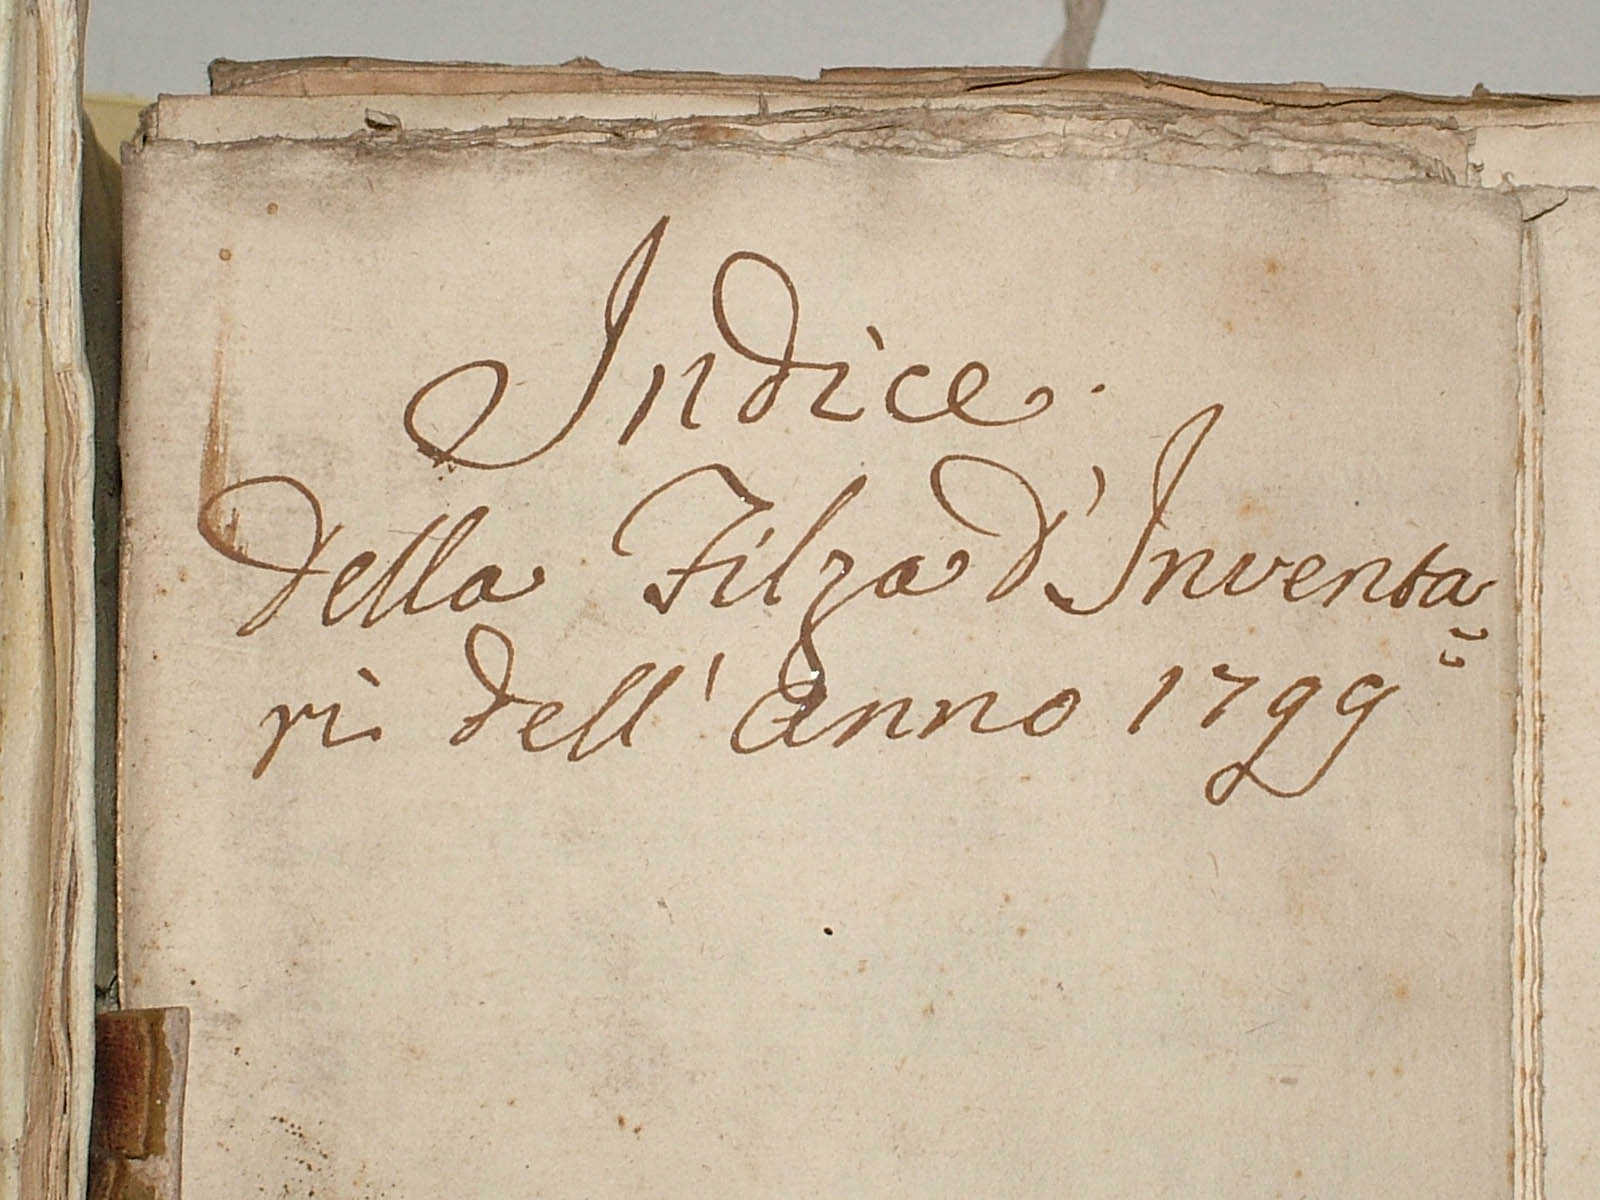 Indice.
della Filza d'Inventa=
ri dell'Anno 1799